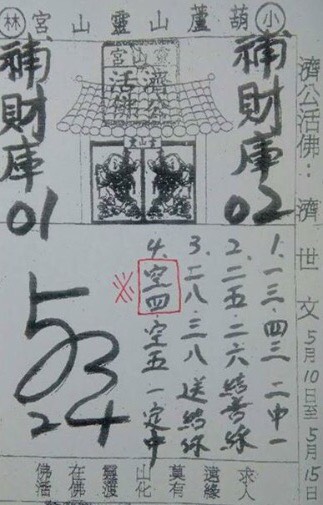 小葫蘆山靈山宮林
濟公活佛：濟世文 5月10日至5月15日
靈山宮
濟公
活佛
補財庫02
補財庫01
1. 一三.四三 二中一
2. 二五.二六 結善緣
3. 二八.三八 送結緣
4. 空四.空五 一定中
※
5 3
2 4
佛在靈山莫遠求
活佛渡化有緣人